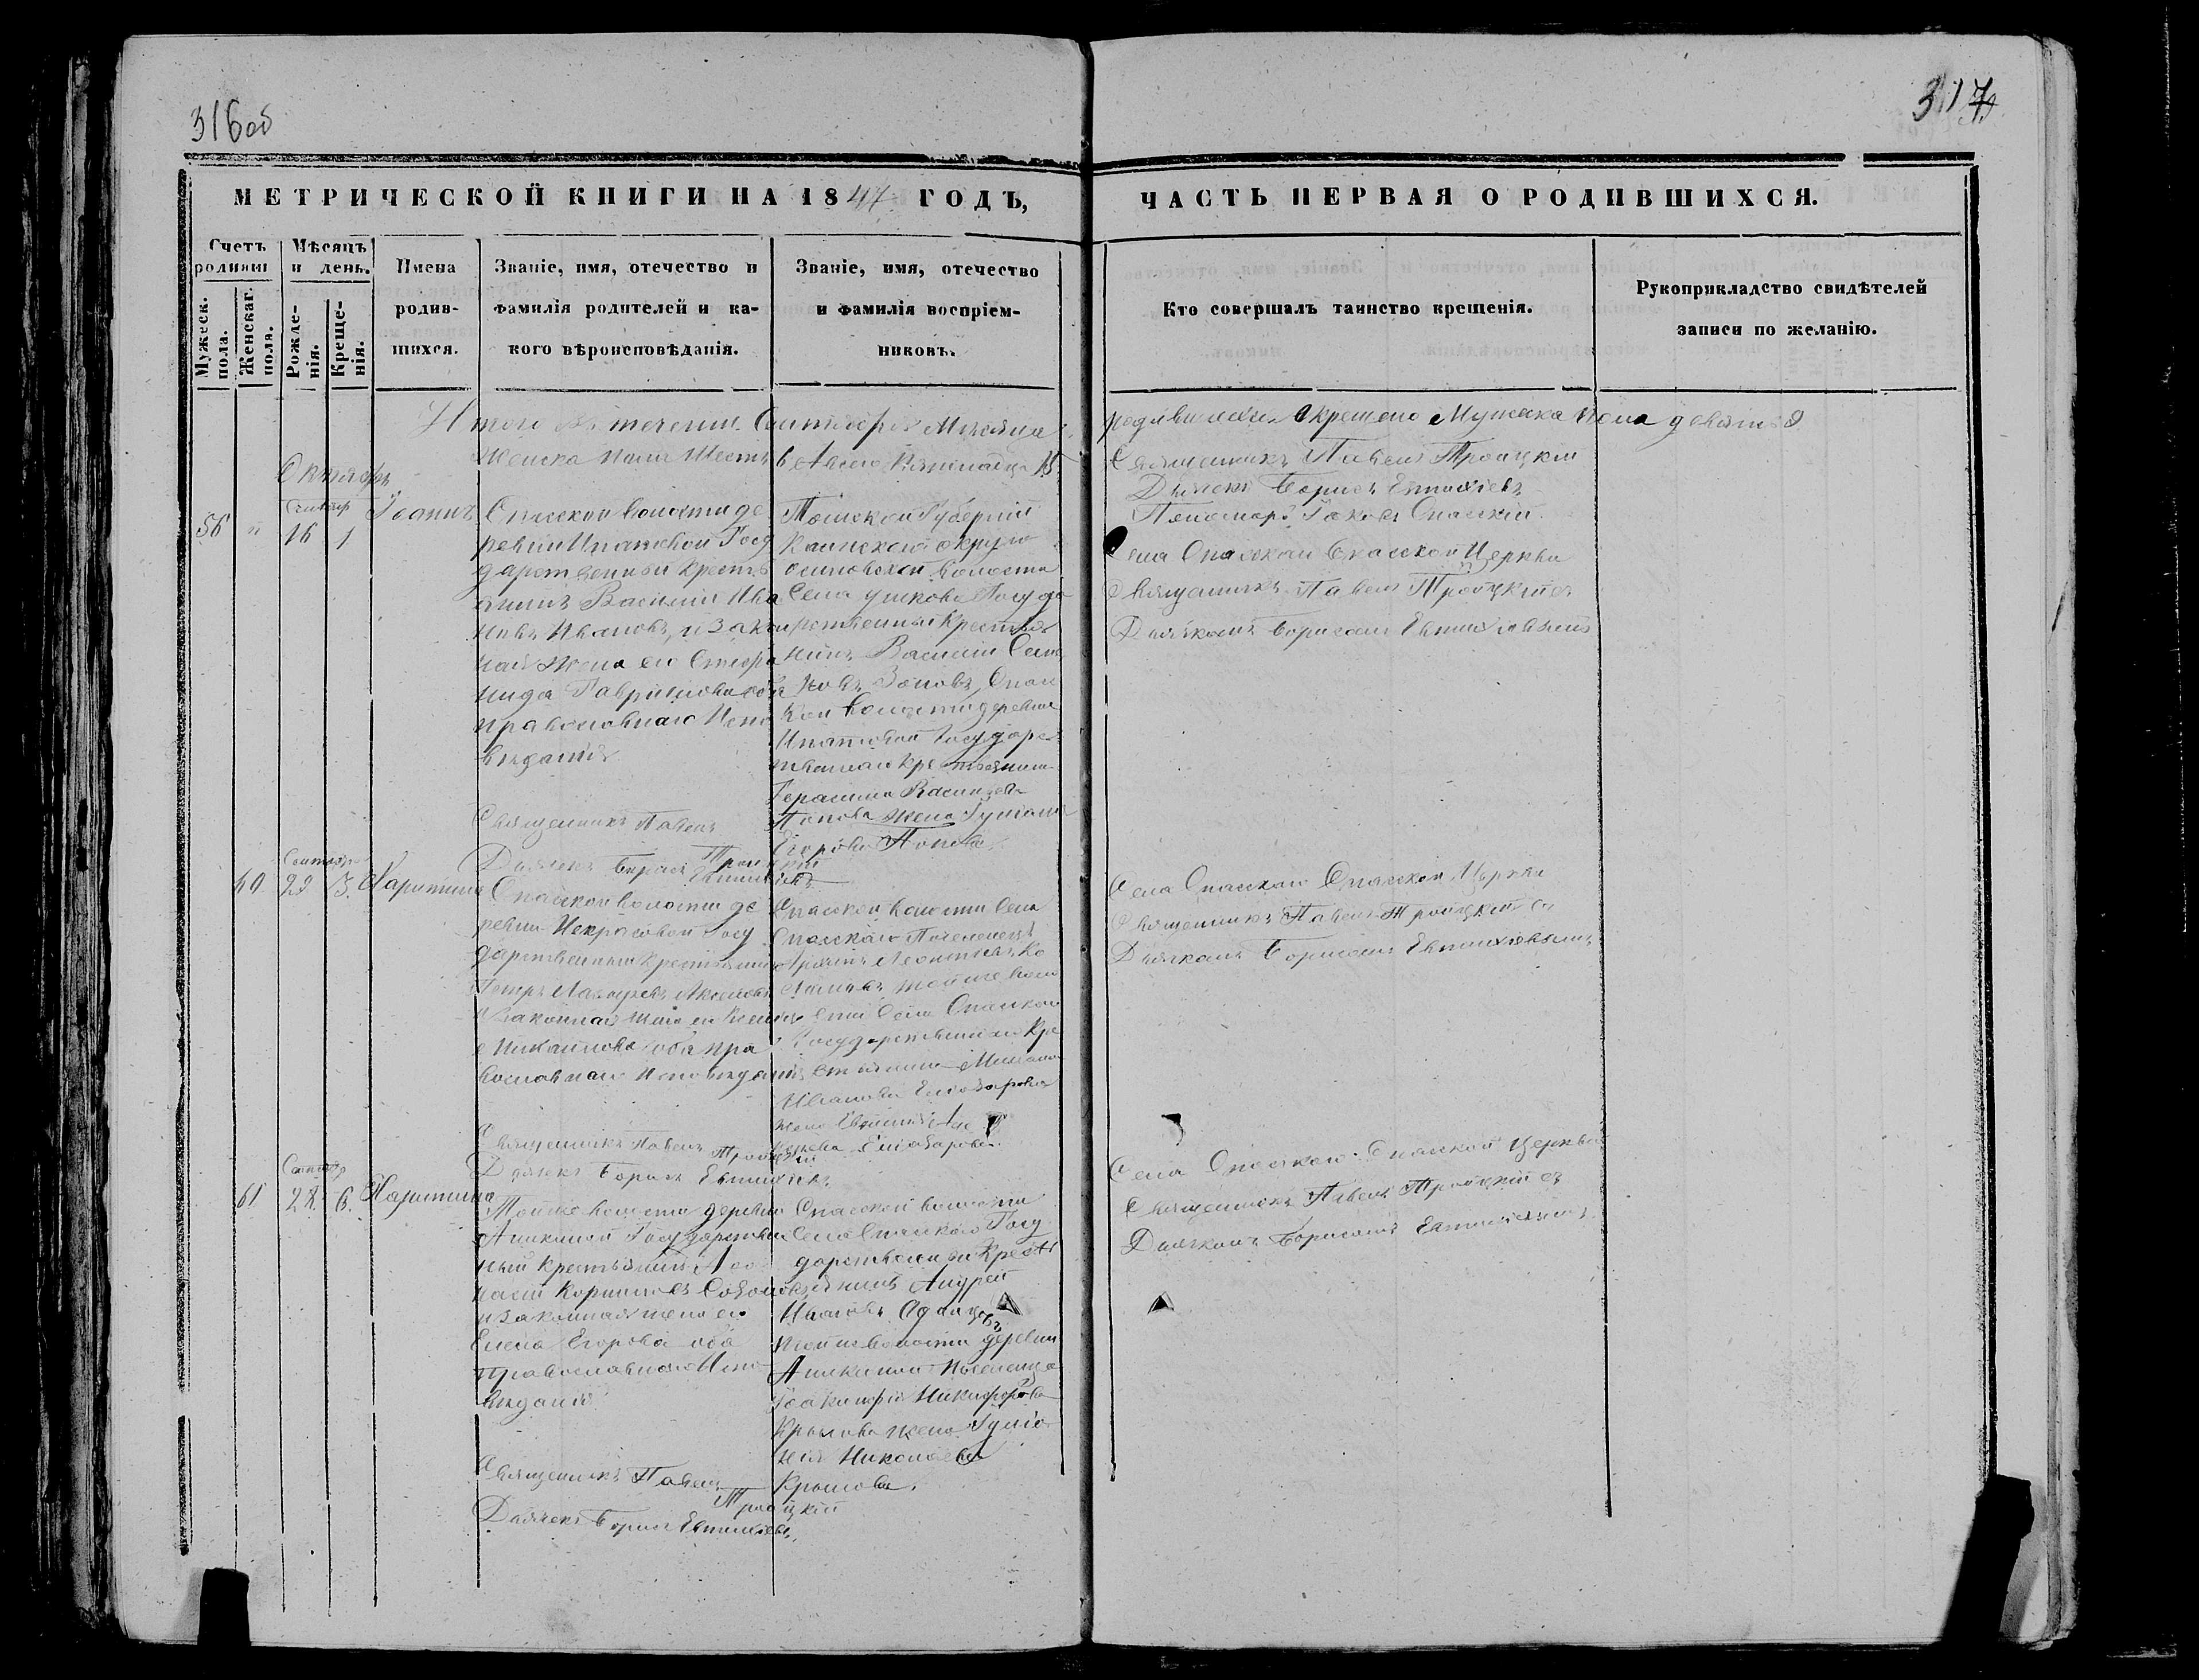 316об
317
МЕТРИЧЕСКОЙ КНИГИ НА 1847 ГОДЪ,
ЧАСТЬ ПЕРВАЯ О РОДИВШИХСЯ.
Счетъ родивш
Мужеск. пола.
Женскаг. пола.
Мѣсяцъ и день.
Рожде-
нія.
Креще-
нія.
Имена
родив-
шихся.
Званіе, имя, отечество и
фамилія родителей и ка-
кого вѣроисповѣданія.
Званіе, имя, отечество
и фамилія воспріем-
никовъ.
Кто совершалъ таинство крещенія.
Рукоприкладство свидѣтелей
записи по желанію.
Итого въ течении Сентября Месяца
родившихся и крещено Мужеска пола девять 9
женска пола Шесть 6 А всего Пятнадцать 15
Священникъ Павелъ Троицкій
Дьячекъ Борисъ Евтихіевъ
Пономарь Іаковъ Спасскій
Октябрь
Сентябр
56 " 16 1
Іоаннъ
Спасской волости де
ревни Ипатовой Госу
дарственный крестья
янинъ Василий Ива
новъ Ивановъ, и закон
ная жена ея
нида Гаврилова оба
православнаго Испо
веданія
Священникъ Павелъ
Троицкій
Дьячекъ Борисъ Евтихіевъ
Томской Губерніи
Каинскаго округа
волости
Села Государ
рственный крестья
нинъ Василий
Поповъ, Спас
кой волости деревни
Ипатовой Государс
твеннаго крестьянина
Герасима Васильева
Попова жена
Егорова Попова
Села Спасскаго Спасской Церкви
Священникъ Павелъ Троицкій съ
Дьячкомъ Борисомъ Евтихіевымъ
Сентябр
60 29 3
Харитина
Спасской волости де
ревни Некрасовой Госу
дарственный крестьянинъ
Петръ
и законная жена ея
Михайлова оба пра
вославнаго Исповеданія
Священникъ Павелъ Троицкій
Дьячекъ Борисъ Евтихіевъ
Спасской волости Села
Спасскаго Поселенецъ
Леонтьевъ
той же воло
сти Села Спасскаго
Государственнаго кре
стьянина Михаила
Иванова Елеазарова
жена Евдокія
Елеазарова.
Села Спасскаго Спасской Церкви
Священникъ Павелъ Троицкій съ
Дьячкомъ Борисомъ Евтихіевымъ
Сентябр
61 28 6
Харитина
Той же волости деревни
Аникиной Государствен
ный крестьянинъ
и законная жена его
Елена Егорова оба
православнаго Испо
веданія
Священникъ Павелъ
Троицкій
Дьячекъ Борисъ Евтихіевъ
Спасской волости
Села Спасскаго Госу
дарственный крестья
янинъ Андрей
Ивановъ Одинцовъ
той же волости деревни
Аникиной поселенца
Никифорова
Крылова жена
Николаева
Крылова.
Села Спасскаго Спасской Церкви
Священникъ Павелъ Троицкій съ
Дьячкомъ Борисомъ Евтихіевымъ